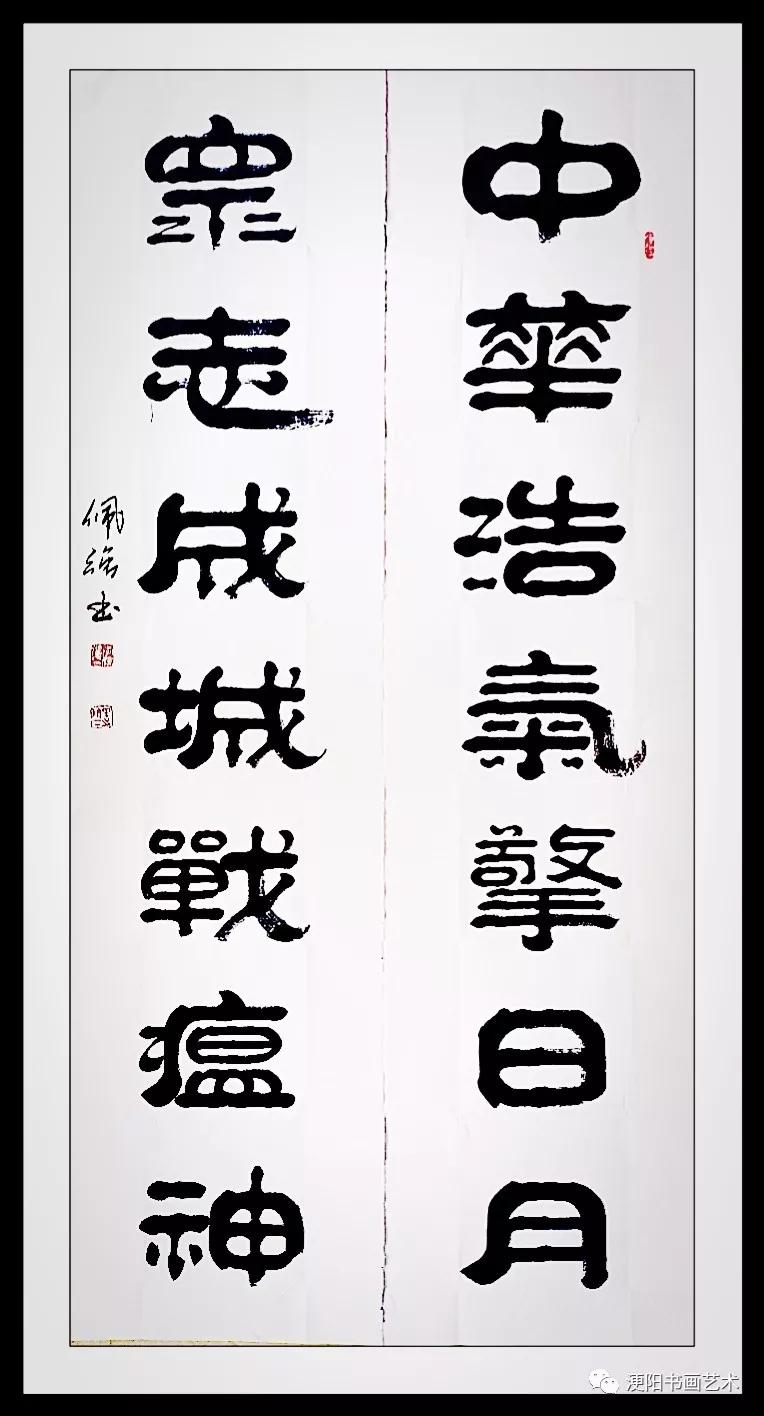 中華浩氣擎日月
眾志成城戰瘟神
佩瑞书
梗阳书画艺术